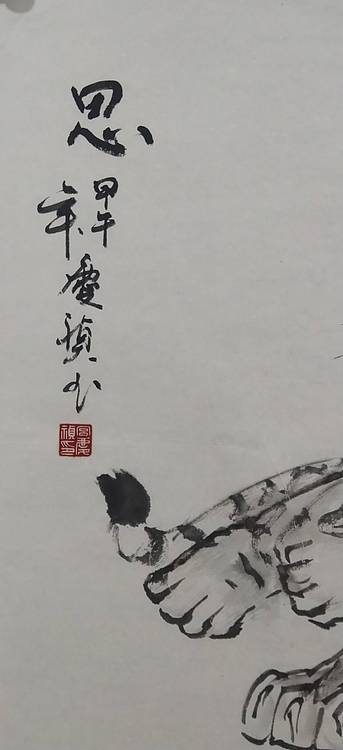 思
甲午
年
慶禎